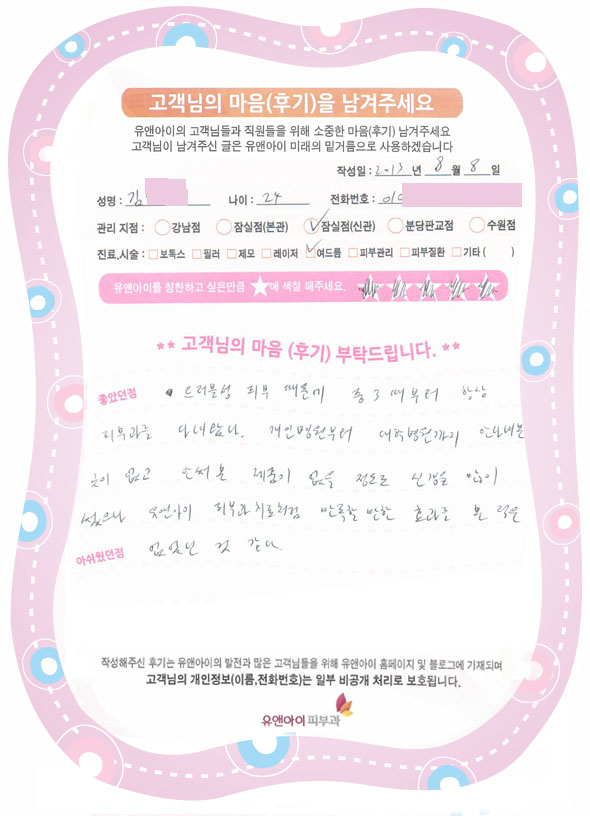 고객님의 마음(후기)을 남겨주세요
유앤아이의 고객님들과 직원들을 위해 소중한 마음(후기) 남겨주세요
고객님이 남겨주신 글은 유앤아이 미래의 밑거름으로 사용하겠습니다
작성일 : 2013 년 8 월 8 일
성명 : 김 나이 : 24 전화번호 : 010
관리 지점 : 강남점 잠실점(본관) 잠실점(신관) 분당판교점 수원점
진료,시술 : 보톡스 필러 제모 레이저 여드름 피부관리 피부질환 기타 ( )
유앤아이를 칭찬하고 싶은만큼 ★에 색칠 해주세요.
** 고객님의 마음 (후기) 부탁드립니다. **
좋았던점 트러블성 피부 때문에 중3 때부터 항상
피부과를 다녀왔다. 개인병원부터 대학병원까지 안다녀본
곳이 없고 안써본 제품이 없을 정도로 신경을 많이
썼으나 유앤아이 피부과 치료처럼 만족할만한 효과를 본 적은
아쉬웠던점 없었던 것 같다.
작성해주신 후기는 유앤아이의 발전과 많은 고객님들을 위해 유앤아이 홈페이지 및 블로그에 기재되며
고객님의 개인정보(이름,전화번호)는 일부 비공개 처리로 보호됩니다.
유앤아이피부과